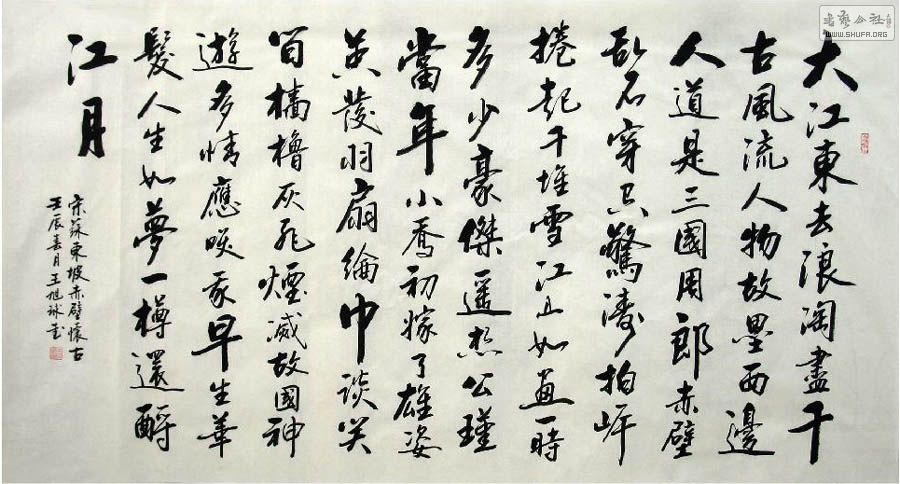 大江東去浪淘盡千
古風流人物故壘西邊
人道是三國周郎赤壁
亂石穿空驚濤拍岸
捲起千堆雪江山如畫一時
多少豪傑遥想公瑾
當年小喬初嫁了雄姿
英發羽扇綸巾談笑
間檣櫓灰飛煙滅故國神
遊多情應笑我早生華
髮人生如夢一樽還酹
江月
宋蘇東坡赤壁懷古
壬辰春月王旭球書
書藝公社
WWW.SHUFA.ORG